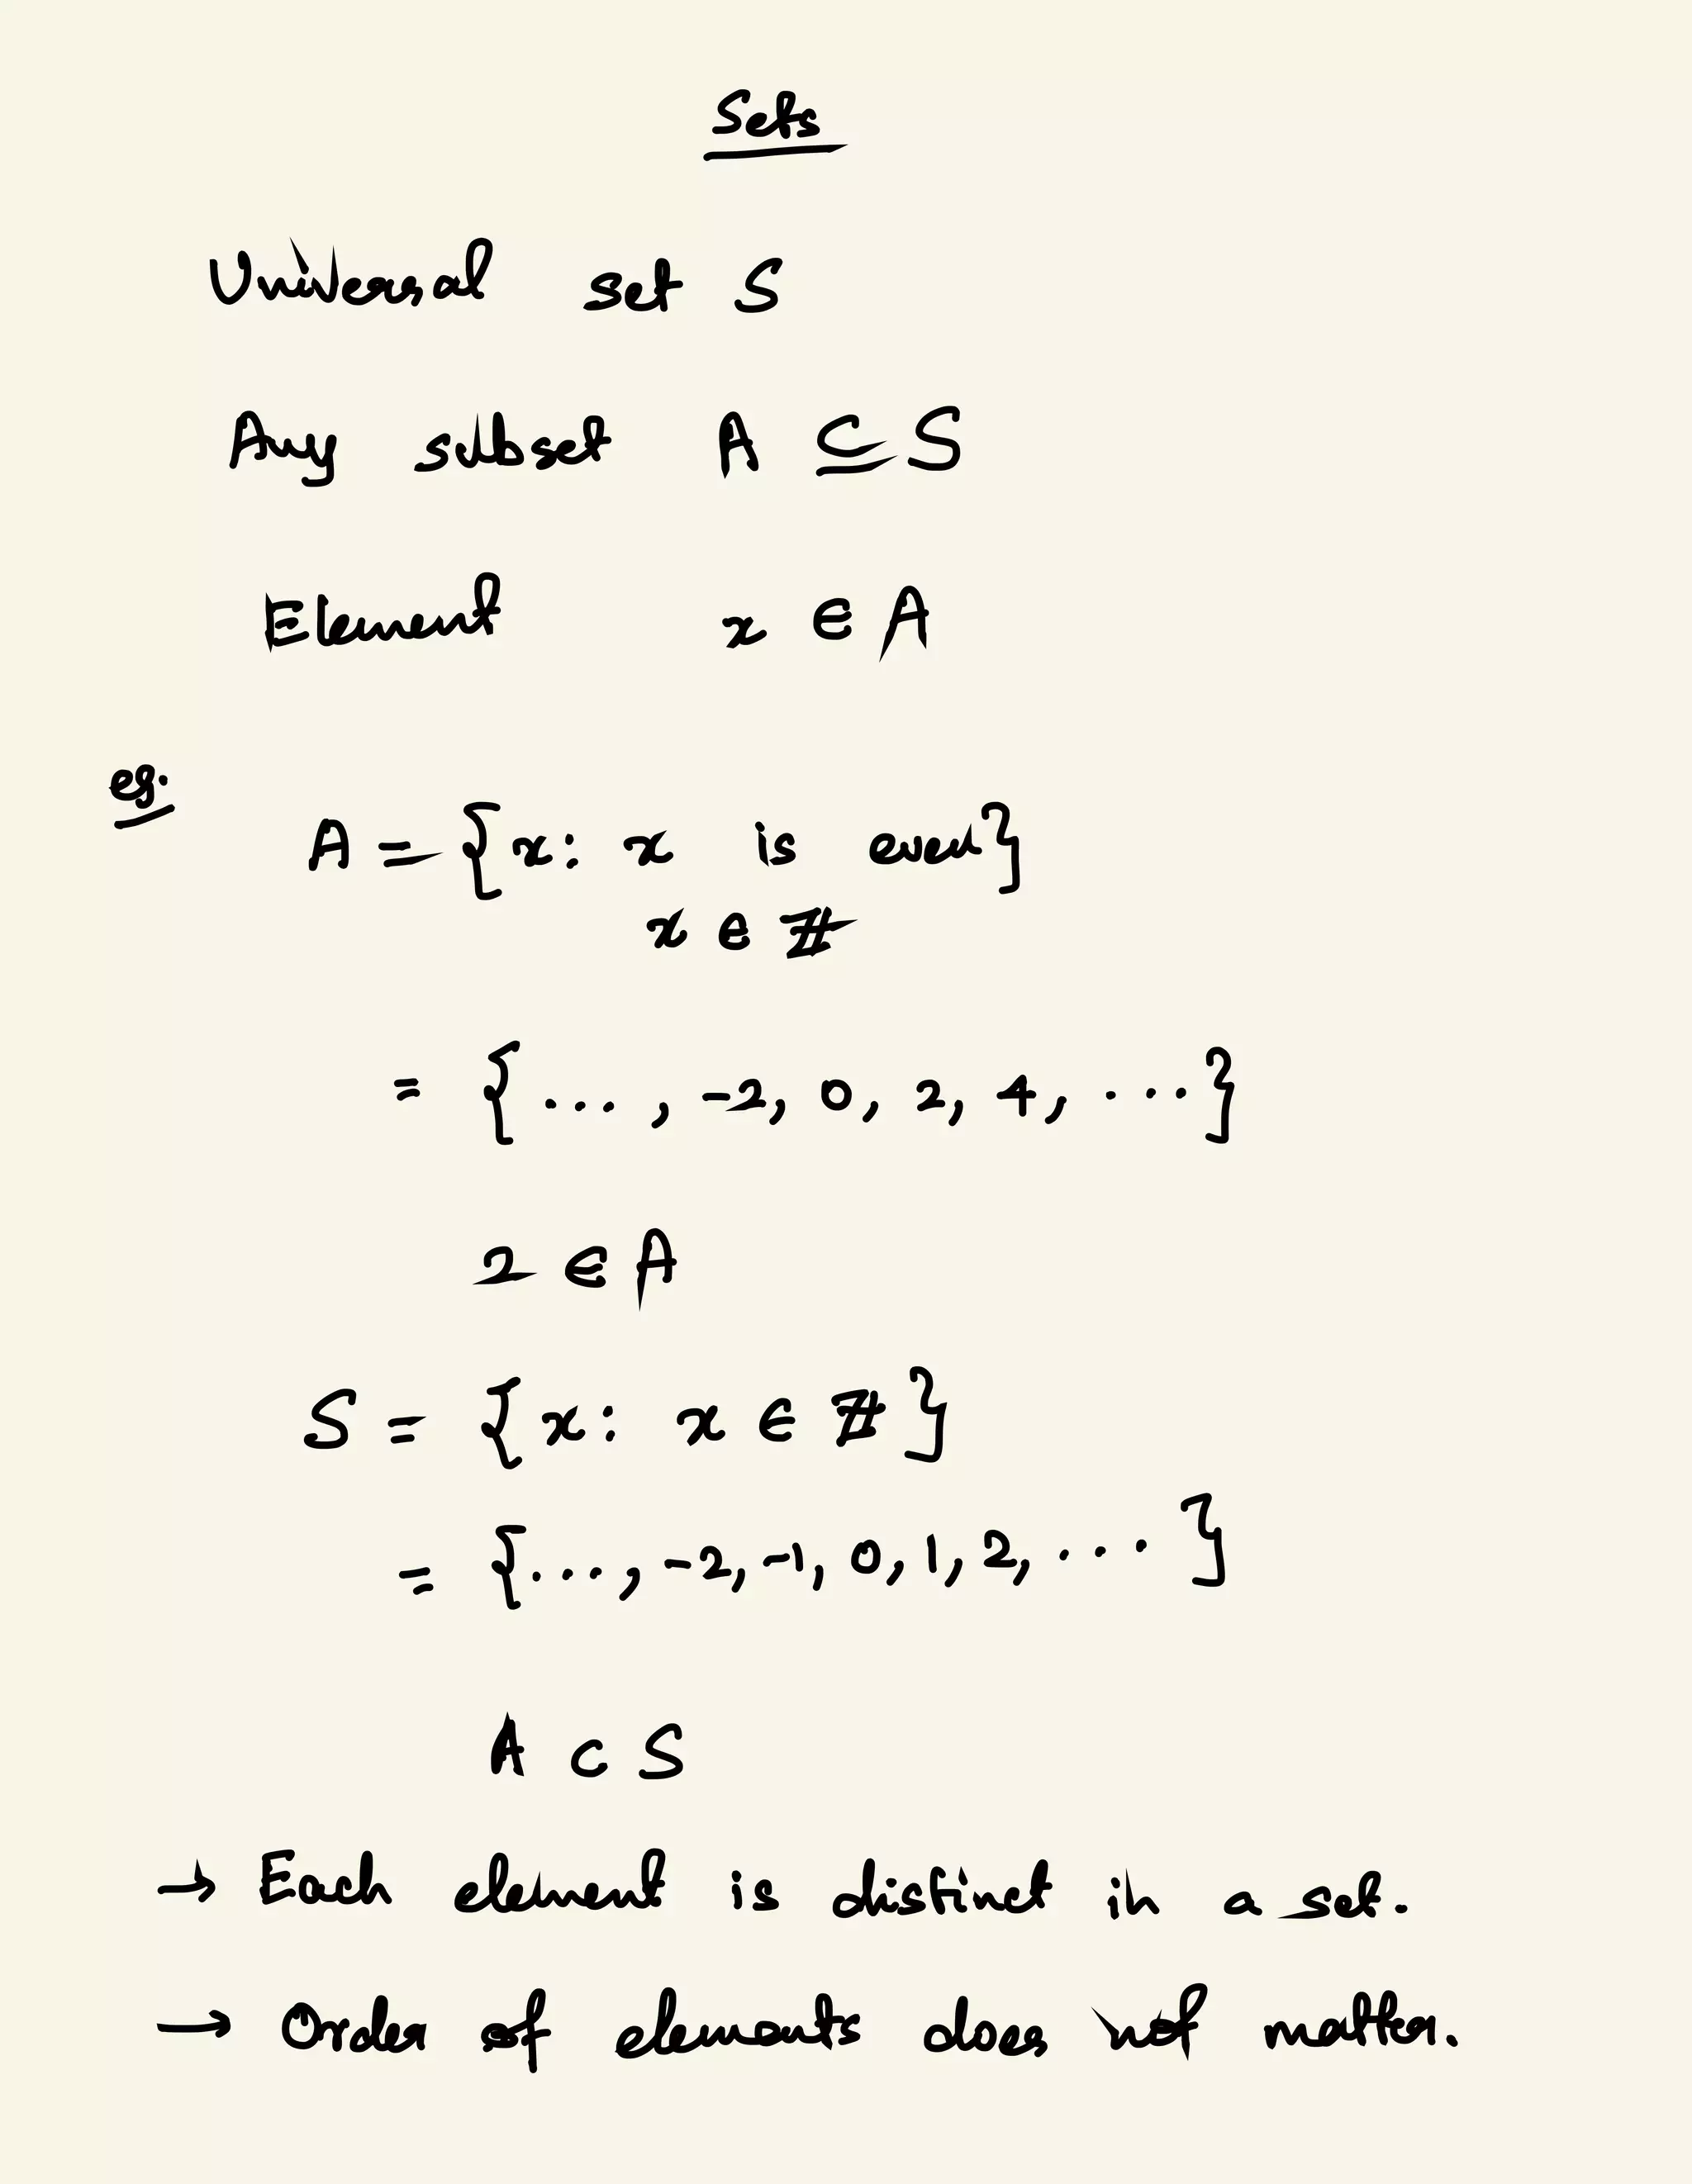 Sets
Universal set S
Any subset A ⊆ S
Element x ∈ A
eg.
A = {x: x is even}
x ∈ ℤ
= {..., -2, 0, 2, 4, ...}
2 ∈ A
S = {x: x ∈ ℤ}
= {..., -2, -1, 0, 1, 2, ...}
A ⊂ S
→ Each element is distinct in a set.
→ Order of elements does not matter.